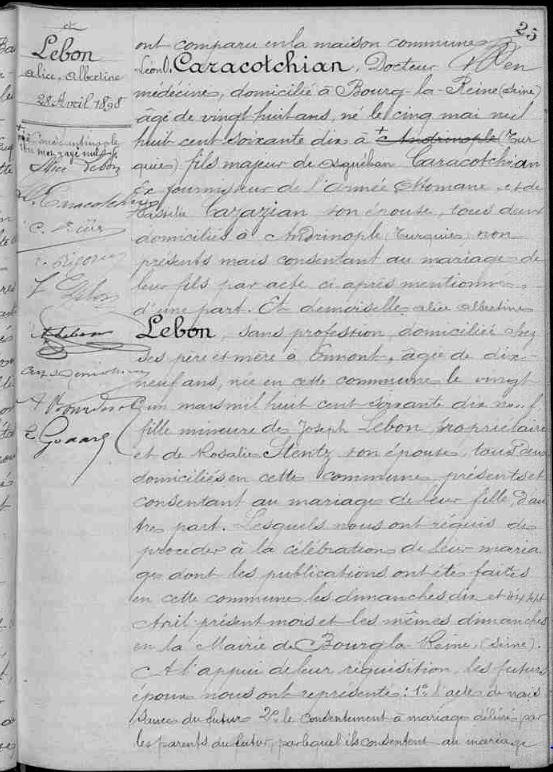 25
et
Lebon
Alice, Albertine
28 Avril 1898
Constantinople
Alice Lebon
Caracotchian
Lebon
Lebon
ont comparu en la maison commune
Léon Caracotchian, Docteur en
médecine, domicilié à Bourg-la-Reine (Seine)
âgé de vingt huit ans, né le cinq mai mil
huit cent soixante dix à Andrinople (Tur
quie) fils majeur de Caracotchian
Ex fournisseur de l'Armée Ottomane, et de
Cazazian son épouse, tous deux
domiciliés à Andrinople (Turquie) non
présents mais consentant au mariage de
leur fils par acte ci après mentionné
d'une part. Et demoiselle Alice Albertine
Lebon, sans profession, domiciliée chez
ses père et mère à Ermont, âgée de dix-
neuf ans, née en cette commune le vingt
un mars mil huit cent soixante dix neuf
fille mineure de Joseph Lebon, propriétaire
et de Rosalie Stentz son épouse, tous deux
domiciliés en cette commune, présents et
consentant au mariage de leur fille, d'au
tre part. Lesquels nous ont requis de
procéder à la célébration de leur maria
ge dont les publications ont été faites
en cette commune les dimanches dix et dix sept
Avril présent mois et les mêmes dimanches
en la Mairie de Bourg la Reine, (Seine).
A l'appui de leur réquisition, les futurs
époux nous ont représenté: 1º l'acte de nais
sance du futur 2º le consentement à mariage délivré par
les parents du futur, par lequel ils consentent au mariage